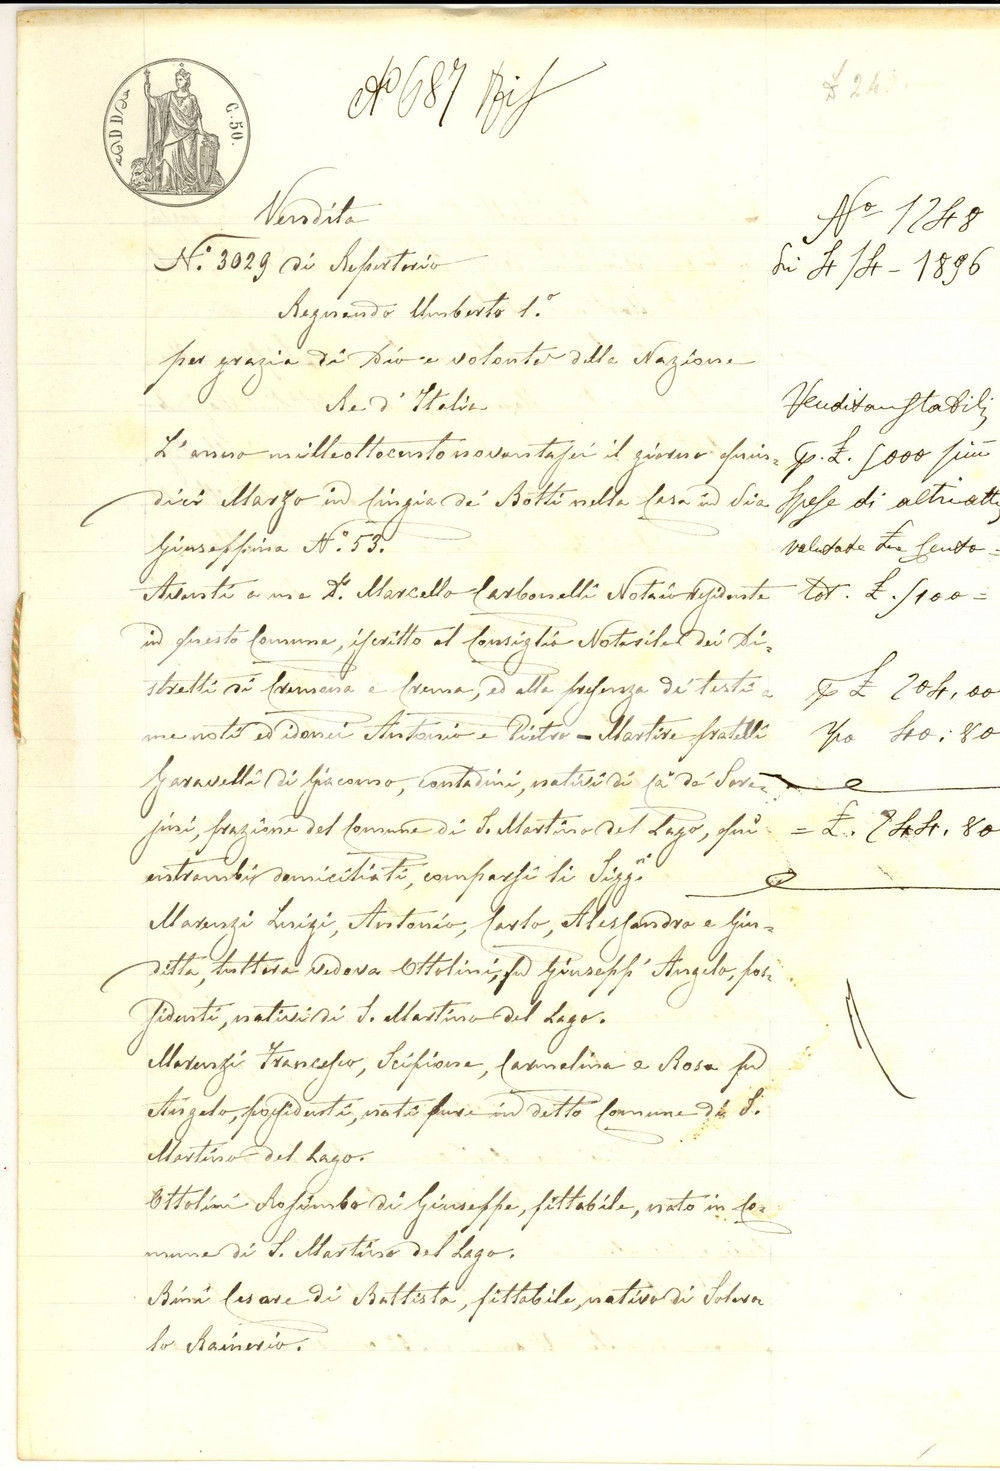 DD
C. 50.
N° 687 Bis
£ 24
Vendita
N.° 3029 di Repertorio
Regnando Umberto 1.°
per grazia di Dio e volontà della Nazione
Re d' Italia
L' anno milleottocentonovantasei il giorno quin-
dici Marzo in Cingia de' Botti nella Casa in Via
Giuseppina N.° 53.
Avanti a me Dr. Marcello Carbonelli Notaio residente
in questo Comune, iscritto al Consiglio Notarile dei Di-
stretti di Cremona e Crema, ed alla presenza de' testi a
me noti ed idonei Antonio e Pietro-Martire fratelli
Garavelli di Giacomo, contadini, nativi di Cà de' Sore-
sini, frazione del Comune di S. Martino del Lago, qui
entrambi domiciliati, comparsi li Sigg.ri
Marenzi Luigi, Antonio, Carlo, Alessandro e Giu-
ditta, tuttora vedova Ottolini, fu Giusepp' Angelo, pos-
sidenti, nativi di S. Martino del Lago.
Marenzi Francesco, Scipione, Carmelina e Rosa fu
Angelo, possidenti, nati pure in detto Comune di S.
Martino del Lago.
Ottolini Rosimbo di Giuseppe, fittabile, nato in Co-
mune di S. Martino del Lago.
Bini Cesare di Battista, fittabile, nativo di Solaro-
lo Rainerio.
N° 1248
Li 4/4-1896
Vendita Stabili
p. £. 5000 più
spese di altri atti
valutate £ Cento =
tot. £. 5100 =
p £ 204.00
40:80
= £. 244.80